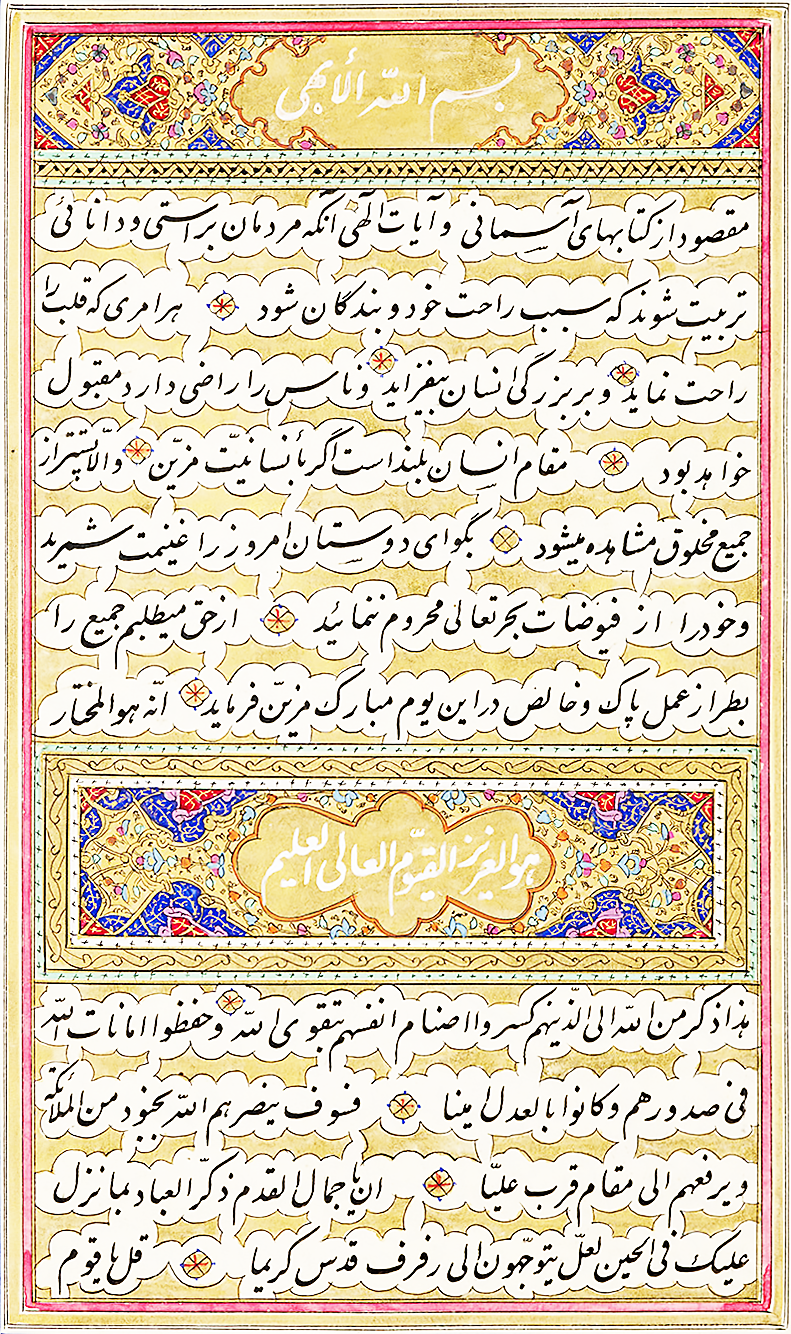 بسم الله الأبهى
مقصود از کتابهای آسمانی و آیات الٓهی آنکه مردمان براستی و دانائی
تربیت شوند که سبب راحت خود و بندگان شود هر امری که قلب را
راحت نماید و بر بزرگی انسان بیفزاید و ناس را راضی دارد مقبول
خواهد بود مقام انسان بلند است اگر بأنسانیّت مزیّن و الّا پست‌تر از
جمیع مخلوق مشاهده میشود بگو ای دوستان امروز را غنیمت شمرید
و خود را از فیوضات بحر تعالی محروم ننمائید از حق میطلبم جمیع را
بطراز عمل پاک و خالص در این یوم مبارک مزیّن فرماید انّه هو المختار
هو العزیز القیّوم العالی العلیم
هذا ذکر من الله الی الّذینهم کسروا اصنام انفسهم بتقوی الله و حفظوا امانات الله
فی صدورهم و کانوا بالعدل امینا فسوف ینصرهم الله بجنود من الملآئکة
و یرفعهم الی مقام قرب علیّا ان یا جمال القدم ذکّر العباد بما نزل
علیک فی الحین لعلّ یتوجّهون الی رفرف قدس کریما قل یا قوم